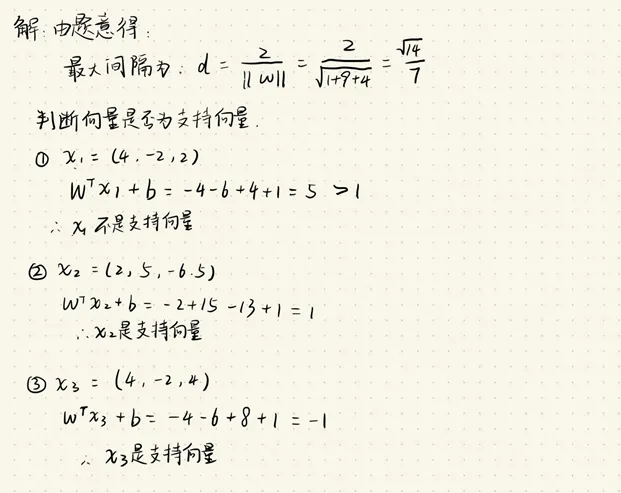 解:由题意得:
最大间隔为: d = 2/||w|| = 2/√(1+9+4) = √14/7
判断向量是否为支持向量.
① x₁ = (4, -2, 2)
Wᵀx₁ + b = -4-6+4+1 = 5 > 1
∴ x₁ 不是支持向量
② x₂ = (2, 5, -6.5)
Wᵀx₂ + b = -2+15-13+1 = 1
∴ x₂是支持向量
③ x₃ = (4, -2, 4)
Wᵀx₃ + b = -4-6+8+1 = -1
∴ x₃是支持向量